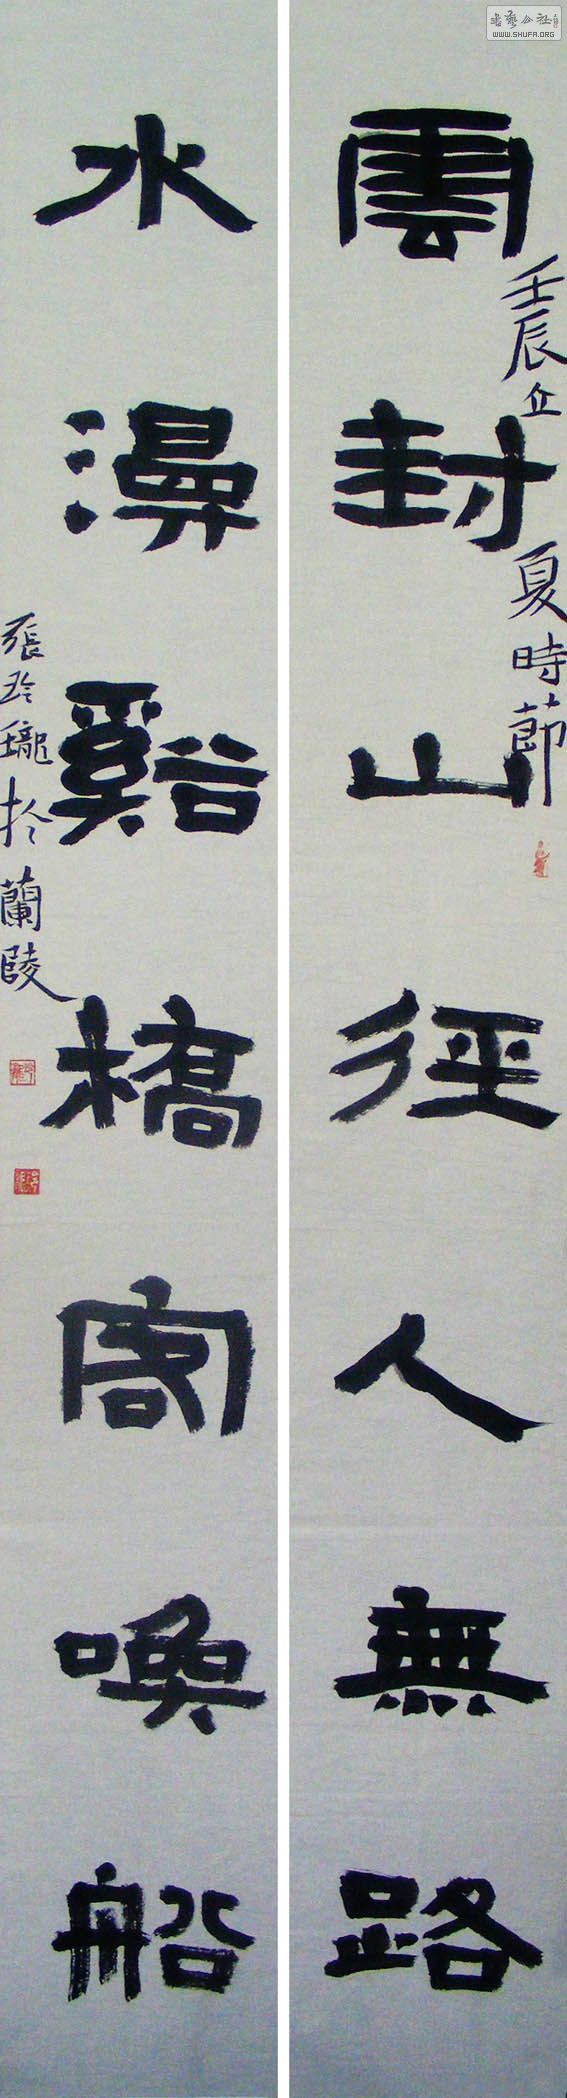 雲封山徑人無路
壬辰立夏時節
水漫谿橋客喚船
張玲瓏於蘭陵
书艺公社
WWW.SHUFA.ORG